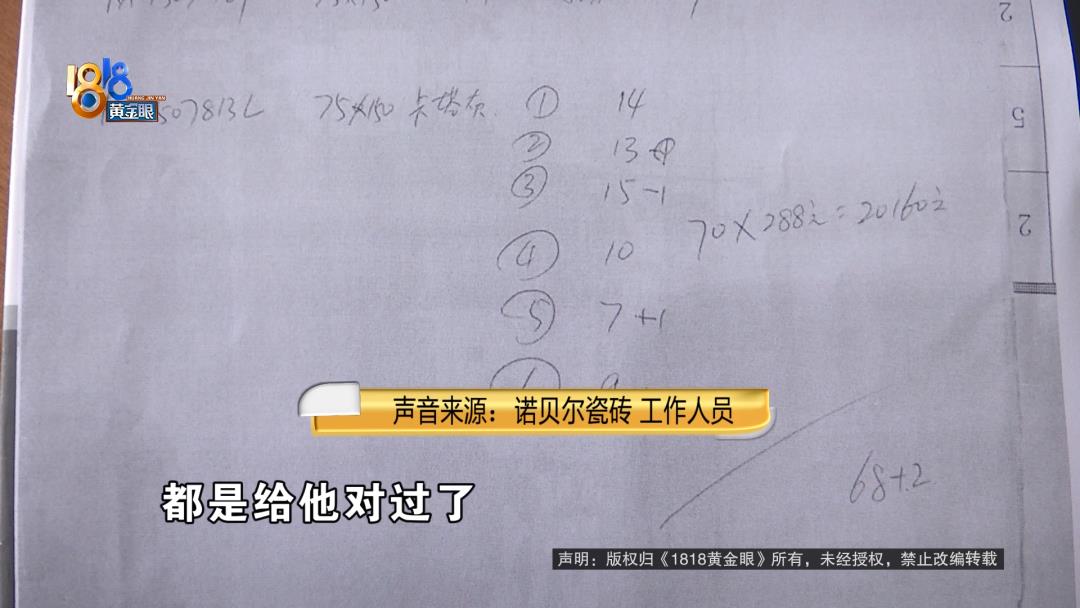 1818
HUANG JIN YAN
黄金眼
507813L 75×150 卡塔灰 ① 14
② 13
③ 15-1
70×288元=20160元
④ 10
⑤ 7+1
68+2
2
5
2
声音来源：诺贝尔瓷砖 工作人员
都是给他对过了
声明：版权归《1818黄金眼》所有，未经授权，禁止改编转载